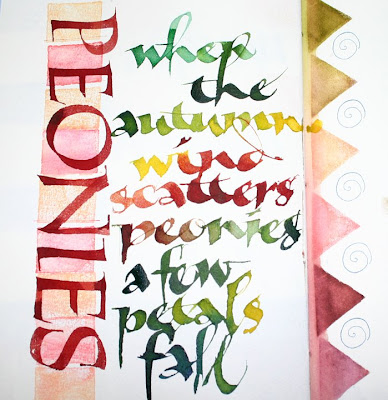 PEONIES
when
the
autumn
wind
scatters
peonies
a few
petals
fall